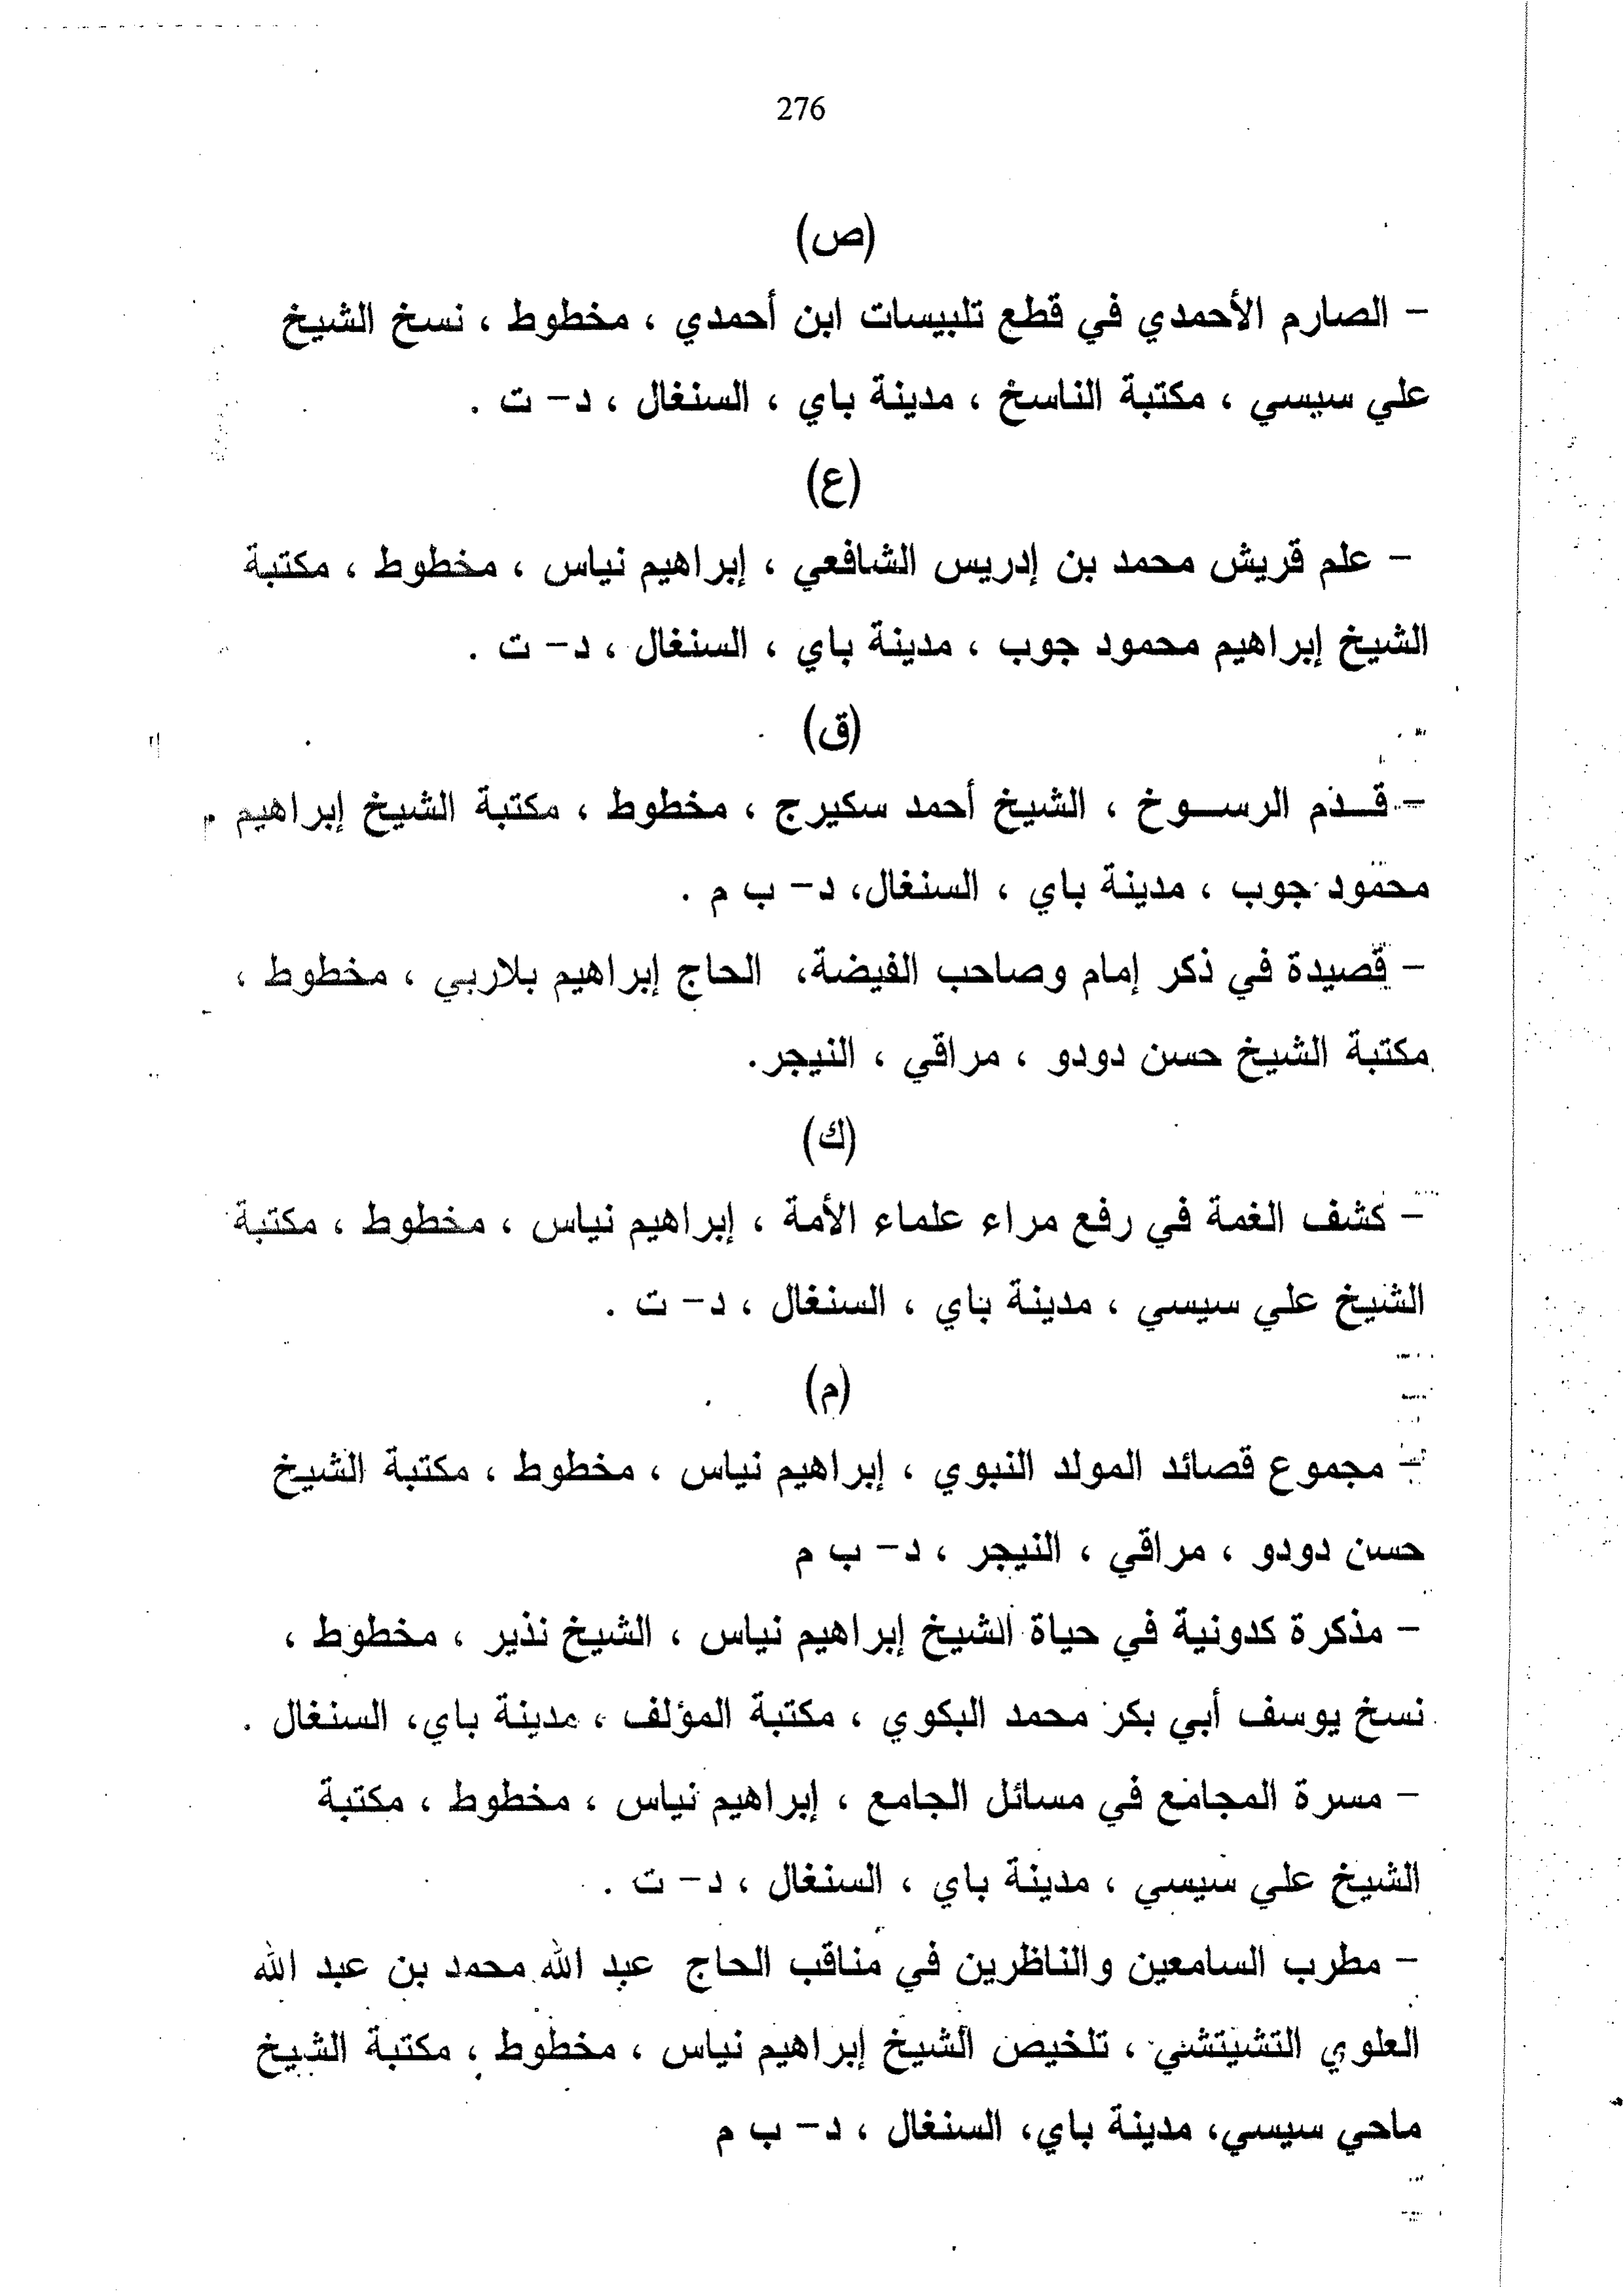 276
(ص)
– الصارم الأحمدي في قطع تلبيسات ابن أحمدي ، مخطوط ، نسخ الشيخ
علي سيسي ، مكتبة الناسخ ، مدينة باي ، السنغال ، د– ت .
(ع)
– علم قريش محمد بن إدريس الشافعي ، إبراهيم نياس ، مخطوط ، مكتبة
الشيخ إبراهيم محمود جوب ، مدينة باي ، السنغال ، د– ت .
(ق)
– قـدم الرسـوخ ، الشيخ أحمد سكيرج ، مخطوط ، مكتبة الشيخ إبراهيم
محمود جوب ، مدينة باي ، السنغال، د– ب م .
– قصيدة في ذكر إمام وصاحب الفيضة، الحاج إبراهيم بلاربي ، مخطوط ،
مكتبة الشيخ حسن دودو ، مراقي ، النيجر.
(ك)
– كشف الغمة في رفع مراء علماء الأمة ، إبراهيم نياس ، مخطوط ، مكتبة
الشيخ علي سيسي ، مدينة باي ، السنغال ، د– ت .
(م)
– مجموع قصائد المولد النبوي ، إبراهيم نياس ، مخطوط ، مكتبة الشيخ
حسن دودو ، مراقي ، النيجر ، د– ب م
– مذكرة كدونية في حياة الشيخ إبراهيم نياس ، الشيخ نذير ، مخطوط ،
نسخ يوسف أبي بكر محمد البكوي ، مكتبة المؤلف ، مدينة باي، السنغال .
– مسرة المجامع في مسائل الجامع ، إبراهيم نياس ، مخطوط ، مكتبة
الشيخ علي سيسي ، مدينة باي ، السنغال ، د– ت .
– مطرب السامعين والناظرين في مناقب الحاج عبد الله محمد بن عبد الله
العلوي التشيتشي ، تلخيص الشيخ إبراهيم نياس ، مخطوط ، مكتبة الشيخ
ماحي سيسي، مدينة باي، السنغال ، د– ب م